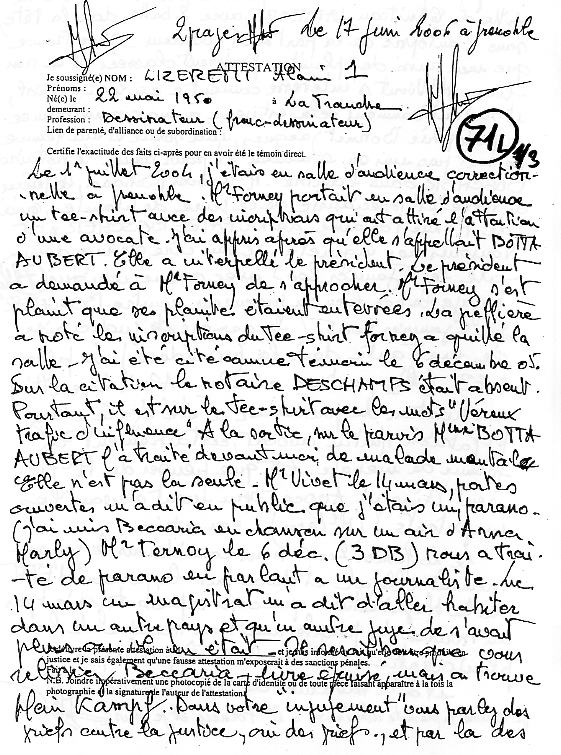 2 pages Le 17 juin 2006 à Grenoble
ATTESTATION
Je soussigné(e) NOM : LIZERETTI Alain 1
Prénoms :
Né(e) le 22 mai 1950 à La Tranche
demeurant :
Profession : Dessinateur (franc-dessinateur)
Lien de parenté, d'alliance ou de subordination :
71L 1/3
Certifie l'exactitude des faits ci-après pour en avoir été le témoin direct.
Le 1er juillet 2004, j'étais en salle d'audience correction-
-nelle à Grenoble. Mr Forney portait en salle d'audience
un tee-shirt avec des inscriptions qui ont attiré l'attention
d'une avocate. J'ai appris après qu'elle s'appellait BOTTA
AUBERT. Elle a interpellé le président. Le président
a demandé à Mr Forney de s'approcher. Mr Forney s'est
plaint que ses plaintes étaient enterrées. La greffière
a noté les inscriptions du tee-shirt Forney a quitté la
salle - J'ai été cité comme témoin le 6 décembre 05.
Sur la citation le notaire DESCHAMPS était absent.
Pourtant, il est sur le tee-shirt avec les mots "Véreux
trafic d'influence" A la sortie, sur le parvis Mme BOTTA
AUBERT l'a traité devant moi de malade mentale
Elle n'est pas la seule - Mr Vivet le 14 mars, portes
ouvertes m'a dit en public que j'étais un parano.
(j'ai mis Beccaria en chanson sur un air d'Anna
Marly) Mr Ternoy le 6 déc. (3 DB) nous a trai-
-té de parano en parlant a un journaliste. Le
14 mars un magistrat m'a dit d'aller habiter
dans un autre pays et qu'un autre juge de s'avait
plus où il en était
et je suis
justice et je sais également qu'une fausse attestation m'exposerait à des sanctions pénales.
Beccaria - livre épuisé, mais on trouve
N.B. Joindre impérativement une photocopie de la carte d'identité ou de toute pièce faisant apparaître à la fois la
photographie et la signature de l'auteur de l'attestation.
Mein Kampf. Dans votre "jugement" vous parlez des
griefs contre la justice, oui des griefs, et par la des